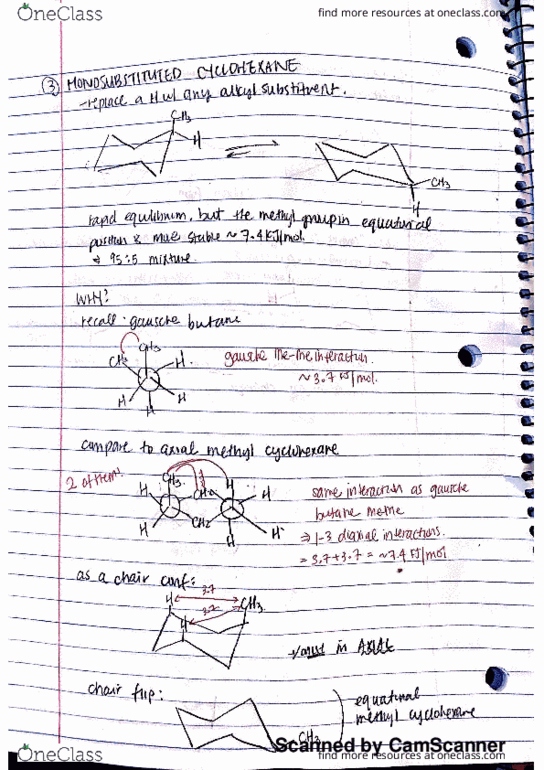 OneClass
find more resources at oneclass.com
③ MONOSUBSTITUTED CYCLOHEXANE
-replace a H w/ any alkyl substituent.
CH3
H
CH3
H
rapid equilibrium, but the methyl group in equatorial
position is more stable ~ 7.4 kJ/mol.
⇒ 95:5 mixture.
WHY?
recall: gausche butane
CH3
CH3
H
H
H
H
gauche me-me interaction.
~3.7 kJ/mol.
compare to axial methyl cyclohexane
2 of them!
CH3
H
H
CH2
CH2
H
H
H
H
same interaction as gauche
butane me-me
⇒ 1-3 diaxial interactions.
= 3.7+3.7 = ~7.4 kJ/mol
as a chair conf:
3.7
H
CH3
3.7
H
in AXIAL
chair flip:
equatorial
methyl cyclohexane
CH3
Scanned by CamScanner
OneClass
find more resources at oneclass.com